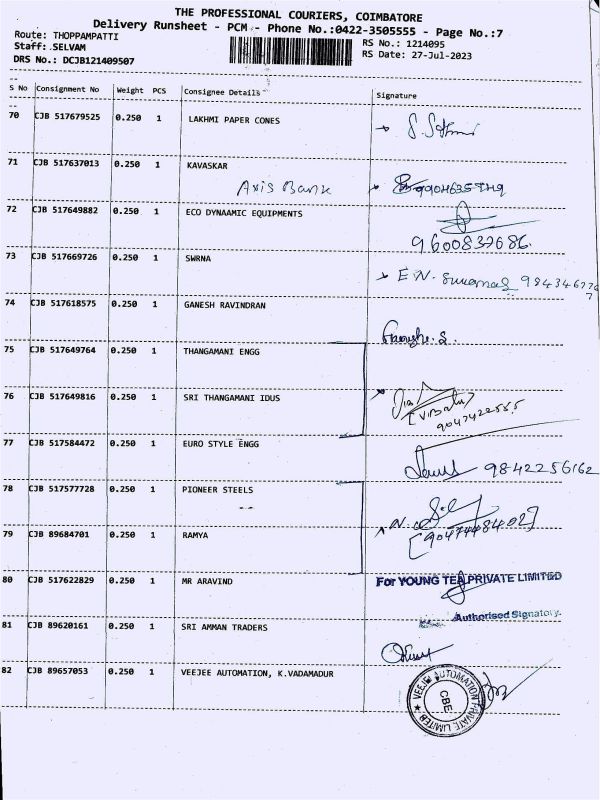 THE PROFESSIONAL COURIERS, COIMBATORE
Delivery Runsheet - PCM - Phone No.:0422-3505555 - Page No.:7
Route: THOPPAMPATTI
RS No.: 1214095
Staff: SELVAM
RS Date: 27-Jul-2023
DRS No.: DCJB121409507
S No Consignment No Weight PCS Consignee Details Signature
70 CJB 517679525 0.250 1 LAKHMI PAPER CONES
71 CJB 517637013 0.250 1 KAVASKAR
Axis Bank
72 CJB 517649882 0.250 1 ECO DYNAAMIC EQUIPMENTS
9600832686.
73 CJB 517669726 0.250 1 SWRNA
E.N.
74 CJB 517618575 0.250 1 GANESH RAVINDRAN
75 CJB 517649764 0.250 1 THANGAMANI ENGG
76 CJB 517649816 0.250 1 SRI THANGAMANI IDUS
77 CJB 517584472 0.250 1 EURO STYLE ENGG
9842256162
78 CJB 517577728 0.250 1 PIONEER STEELS
--
79 CJB 89684701 0.250 1 RAMYA
80 CJB 517622829 0.250 1 MR ARAVIND For YOUNG TEA PRIVATE LIMITED
Authorised Signatory.
81 CJB 89620161 0.250 1 SRI AMMAN TRADERS
82 CJB 89657053 0.250 1 VEEJEE AUTOMATION, K.VADAMADUR
VEEJEE AUTOMATION PRIVATE LIMITED
CBE